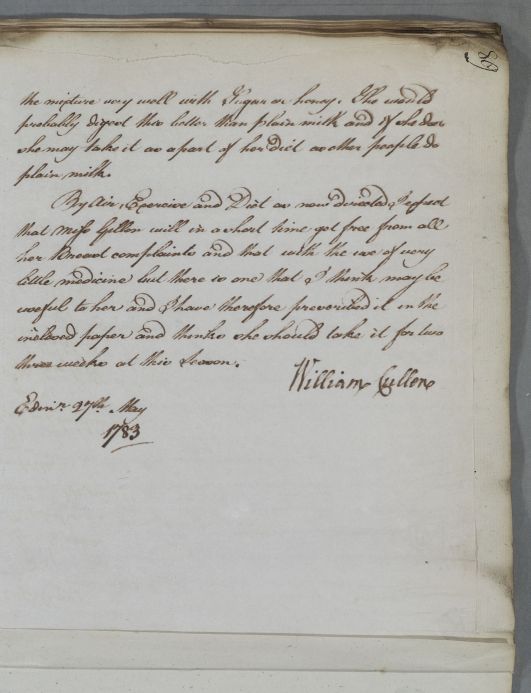 89
the mixture very well with Sugar or honey. She would
probably digest this better than plain milk and if she does
she may take it as a part of her diet as other people do
plain milk.
By Air, Exercise and Diet as now directed, I expect
that Miss Gillon will in a short time get free from all
her Breast complaints and that with the use of very
little medicine but there is one that I think may be
useful to her and I have therefore prescribed it in the
inclosed paper and thinks she should take it for two
three weeks at this Season.
William Cullen
Edinr. 27th. May
1783